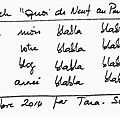 "Quoi de Neuf au
mois blabla blabla
votre blabla blabla
blog blabla blabla
aussi blabla blabla
bre 2014 par Tara.